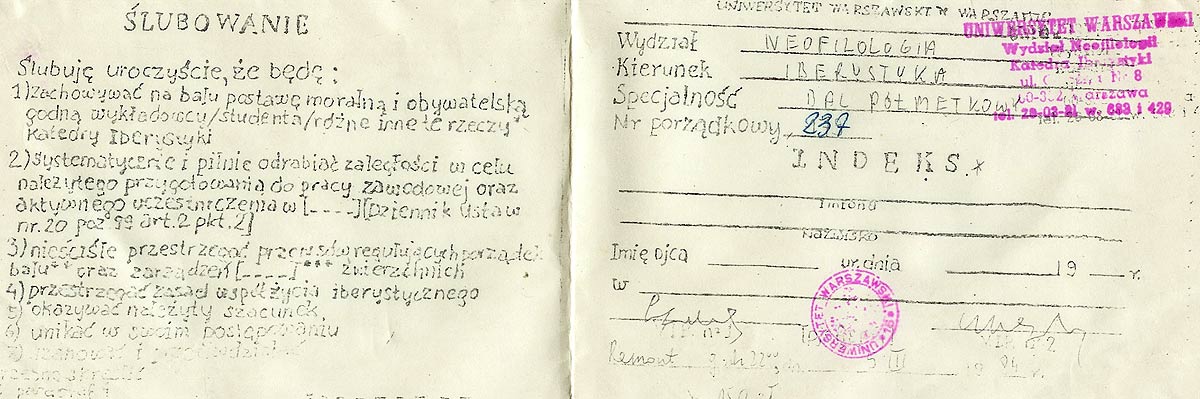 ŚLUBOWANIE
Ślubuję uroczyście, że będę:
1) zachowywać na balu postawę moralną i obywatelską
godną wykładowcy/studenta/różne inne te rzeczy*
Katedry Iberystyki
2) systematycznie i pilnie odrabiać zaległości w celu
należytego przygotowania do pracy zawodowej oraz
aktywnego uczestniczenia w [----][Dziennik Ustaw
nr.20 poz 99 art.2 pkt.2]
3) nieściśle przestrzegać przepisów regulujących porządek
balu** oraz zarządzeń [----]*** zwierzchnich
4) przestrzegać zasad współżycia iberystycznego
5) okazywać należyty szacunek
6) unikać w swoim postępowaniu
UNIWERSYTET WARSZAWSKI W WARSZAWIE
Wydział NEOFILOLOGIA
Kierunek IBERYSTYKA
Specjalność BAL PÓŁMETKOWY
Nr porządkowy 237
INDEKS*
imiona
nazwisko
Imię ojca ur. dnia 19 r.
w
Remont
UNIWERSYTET WARSZAWSKI
Wydział Neofilologii
Katedra Iberystyki
Warszawa
UNIWERSYTET WARSZAWSKI